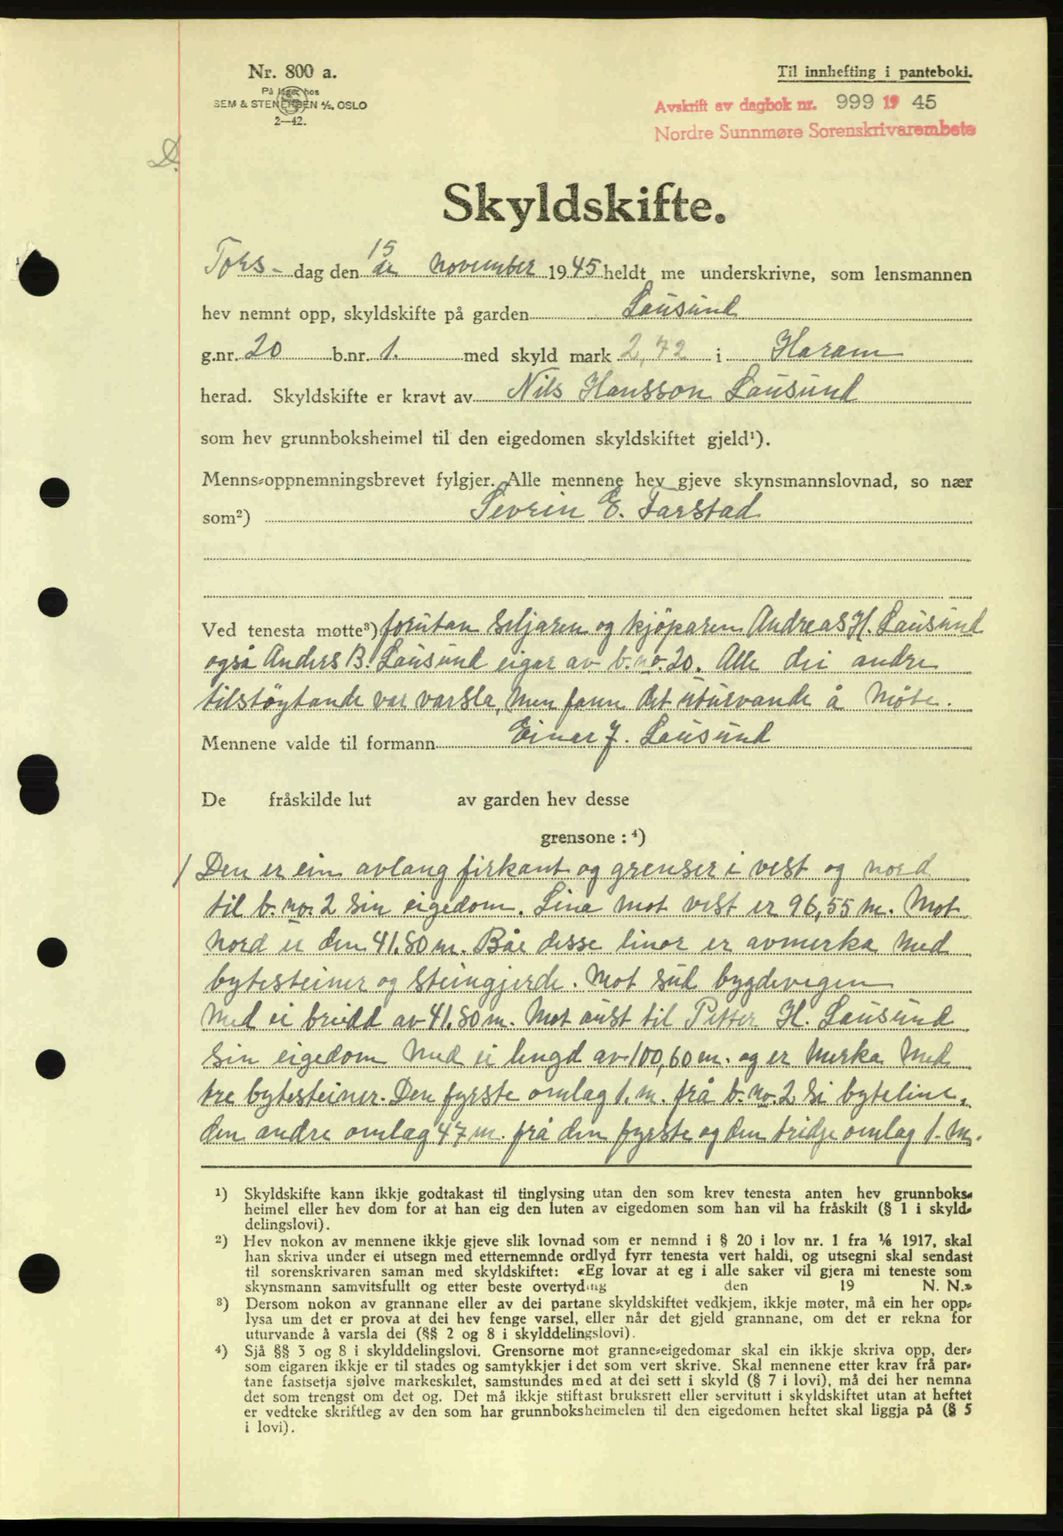 Nr. 800 a.
På lager hos
SEM & STENERSEN A/S, OSLO
2—42.
Til innhefting i panteboki.
Avskrift av dagbok nr. 999 19 45
Nordre Sunnmøre Sorenskrivarembete
Skyldskifte.
Tors- dag den 15 de november 1945 heldt me underskrivne, som lensmannen
hev nemnt opp, skyldskifte på garden Lausund
g.nr. 20 b.nr. 1. med skyld mark 2,72 i Haram
herad. Skyldskifte er kravt av Nils Hansson Lausund
som hev grunnboksheimel til den eigedomen skyldskiftet gjeld¹).
Menns-oppnemningsbrevet fylgjer. Alle mennene hev gjeve skynsmannslovnad, so nær
som²) Sevrin E. Farstad
Ved tenesta møtte³) forutan seljaren og kjöparen Andreas H. Lausund
også Anders B. Lausund eigar av b.no. 20. Alle dei andre
tilstöytande var varsla, men fann det uturvande å möte.
Mennene valde til formann Einar J. Lausund
De fråskilde lut av garden hev desse
grensone : ⁴)
1/ Den er ein avlang firkant og grenser i vest og nord
til b.no. 2 sin eigedom. Lina mot vest er 96,55 m. Mot
nord er den 41.80 m. Båe desse linor er avmerka med
bytesteiner og steingjerde. Mot sud bygdevegen
med ei breidd av 41.80 m. Mot aust til Petter H. Lausund
sin eigedom med ei lengd av 100,60 m. og er merka med
tre bytesteiner. Den fyrste omlag 1. m. frå b.no. 2 si byteline,
den andre omlag 47 m. frå den fyrste og den tridje omlag 1. m.
¹) Skyldskifte kann ikkje godtakast til tinglysing utan den som krev tenesta anten hev grunnboks-
heimel eller hev dom for at han eig den luten av eigedomen som han vil ha fråskilt (§ 1 i skyld-
delingslovi).
²) Hev nokon av mennene ikkje gjeve slik lovnad som er nemnd i § 20 i lov nr. 1 fra 1/6 1917, skal
han skriva under ei utsegn med etternemnde ordlyd fyrr tenesta vert haldi, og utsegni skal sendast
til sorenskrivaren saman med skyldskiftet: «Eg lovar at eg i alle saker vil gjera mi teneste som
skynsmann samvitsfullt og etter beste overtyding den 19 N. N.»
³) Dersom nokon av grannane eller av dei partane skyldskiftet vedkjem, ikkje møter, må ein her opp-
lysa um det er prova at dei hev fenge varsel, eller når det gjeld grannane, om det er rekna for
uturvande å varsla dei (§§ 2 og 8 i skylddelingslovi).
⁴) Sjå §§ 3 og 8 i skylddelingslovi. Grensorne mot granne-eigedomar skal ein ikkje skriva opp, der-
som eigaren ikkje er til stades og samtykkjer i det som vert skrive. Skal mennene etter krav frå par-
tane fastsetja sjølve markeskilet, samstundes med at dei sett i skyld (§ 7 i lovi), må dei her nemna
det som trengst om det og. Det må ikkje stiftast bruksrett eller servitutt i skyldskiftet utan at heftet
er vedteke skriftleg av den som har grunnboksheimelen til den eigedomen heftet skal liggja på (§ 5
i lovi).